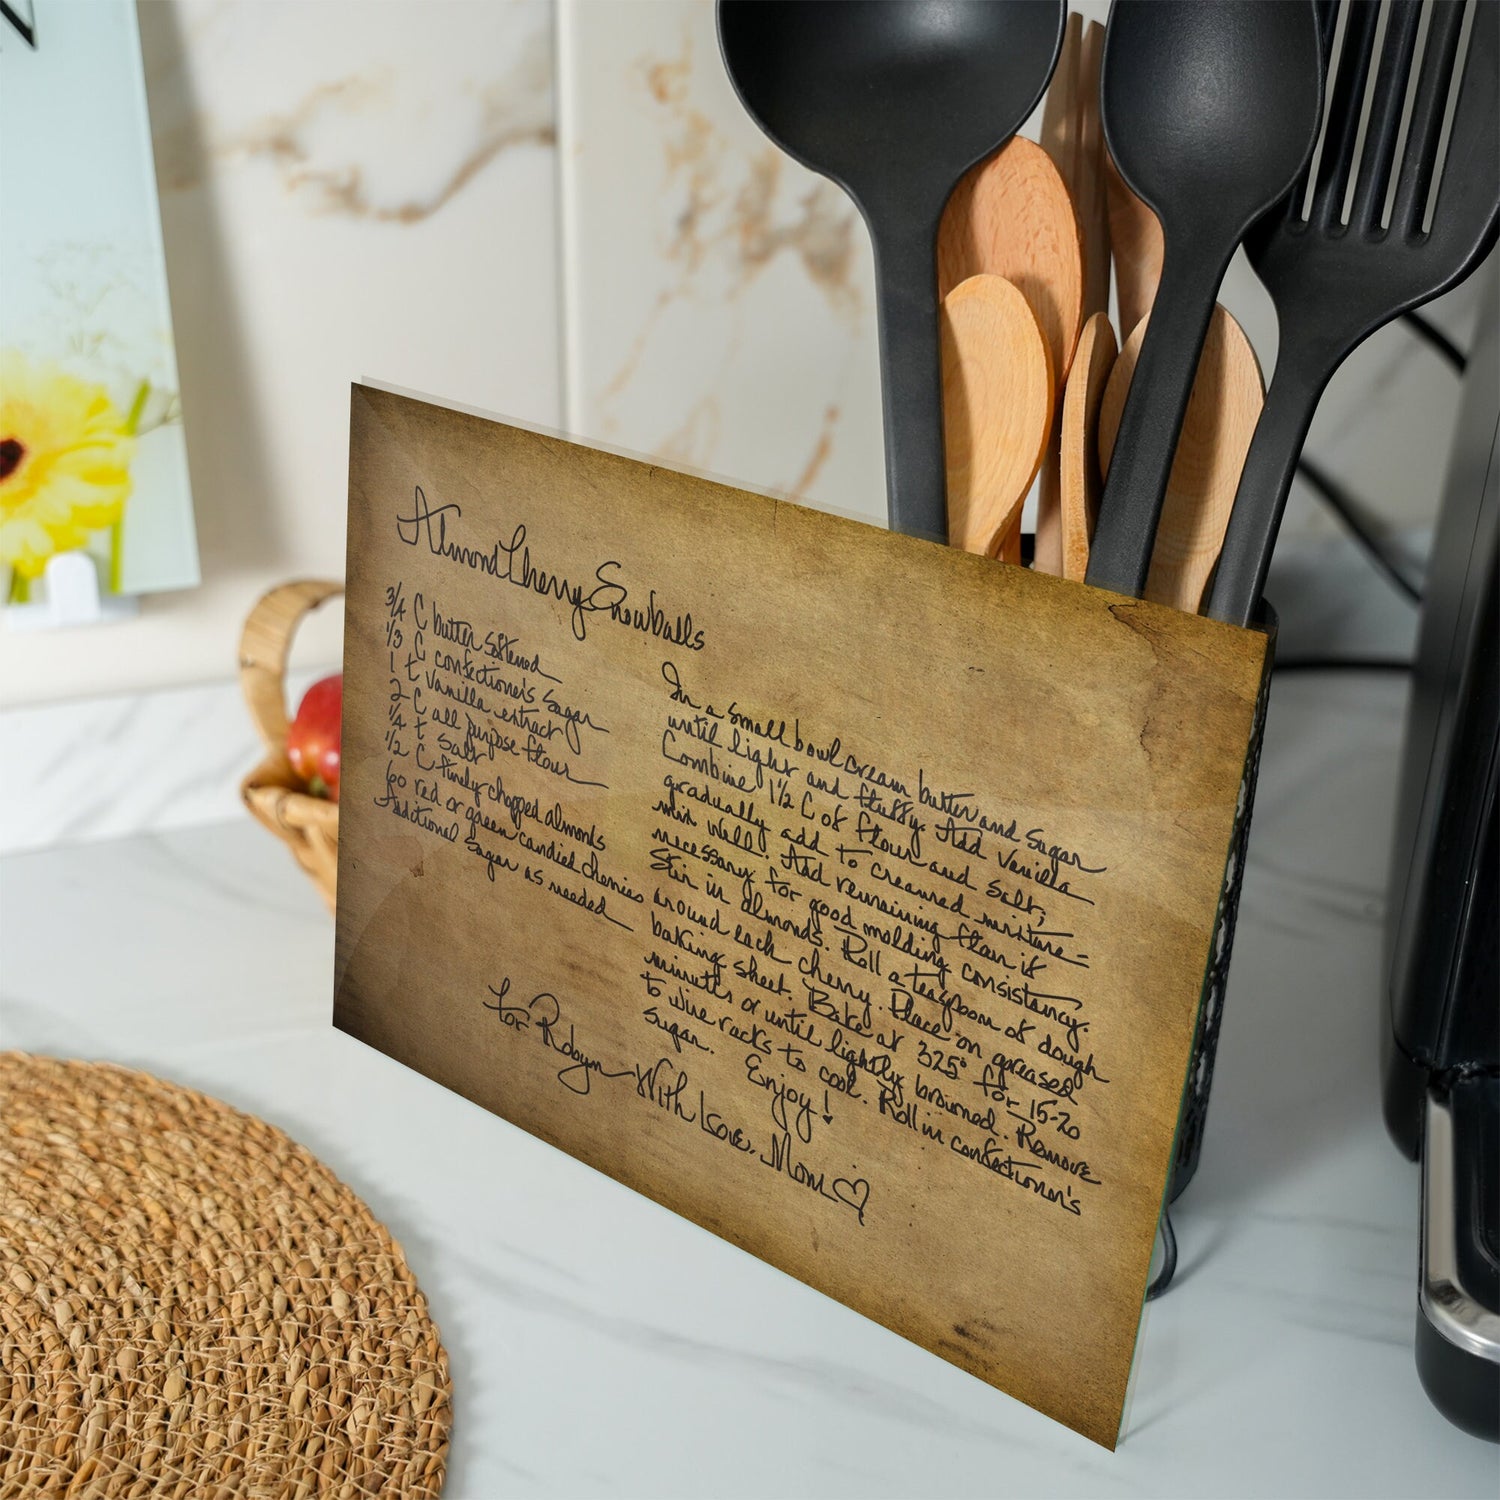 Almond Cherry Snowballs
3/4 C butter softened
1/3 C confectioner's sugar
1 t vanilla extract
2 C all purpose flour
1/4 t salt
1/2 C finely chopped almonds
60 red or green candied cherries
Additional sugar as needed
In a small bowl cream butter and sugar
until light and fluffy. Add vanilla
Combine 1 1/2 C of flour and salt;
gradually add to creamed mixture -
mix well. Add remaining flour if
necessary for good molding consistancy.
Stir in almonds. Roll a teaspoon of dough
around each cherry. Place on greased
baking sheet. Bake at 325° for 15-20
minutes or until lightly browned. Remove
to wire racks to cool. Roll in confectioner's
sugar. Enjoy!
for Robyn With Love, Mom